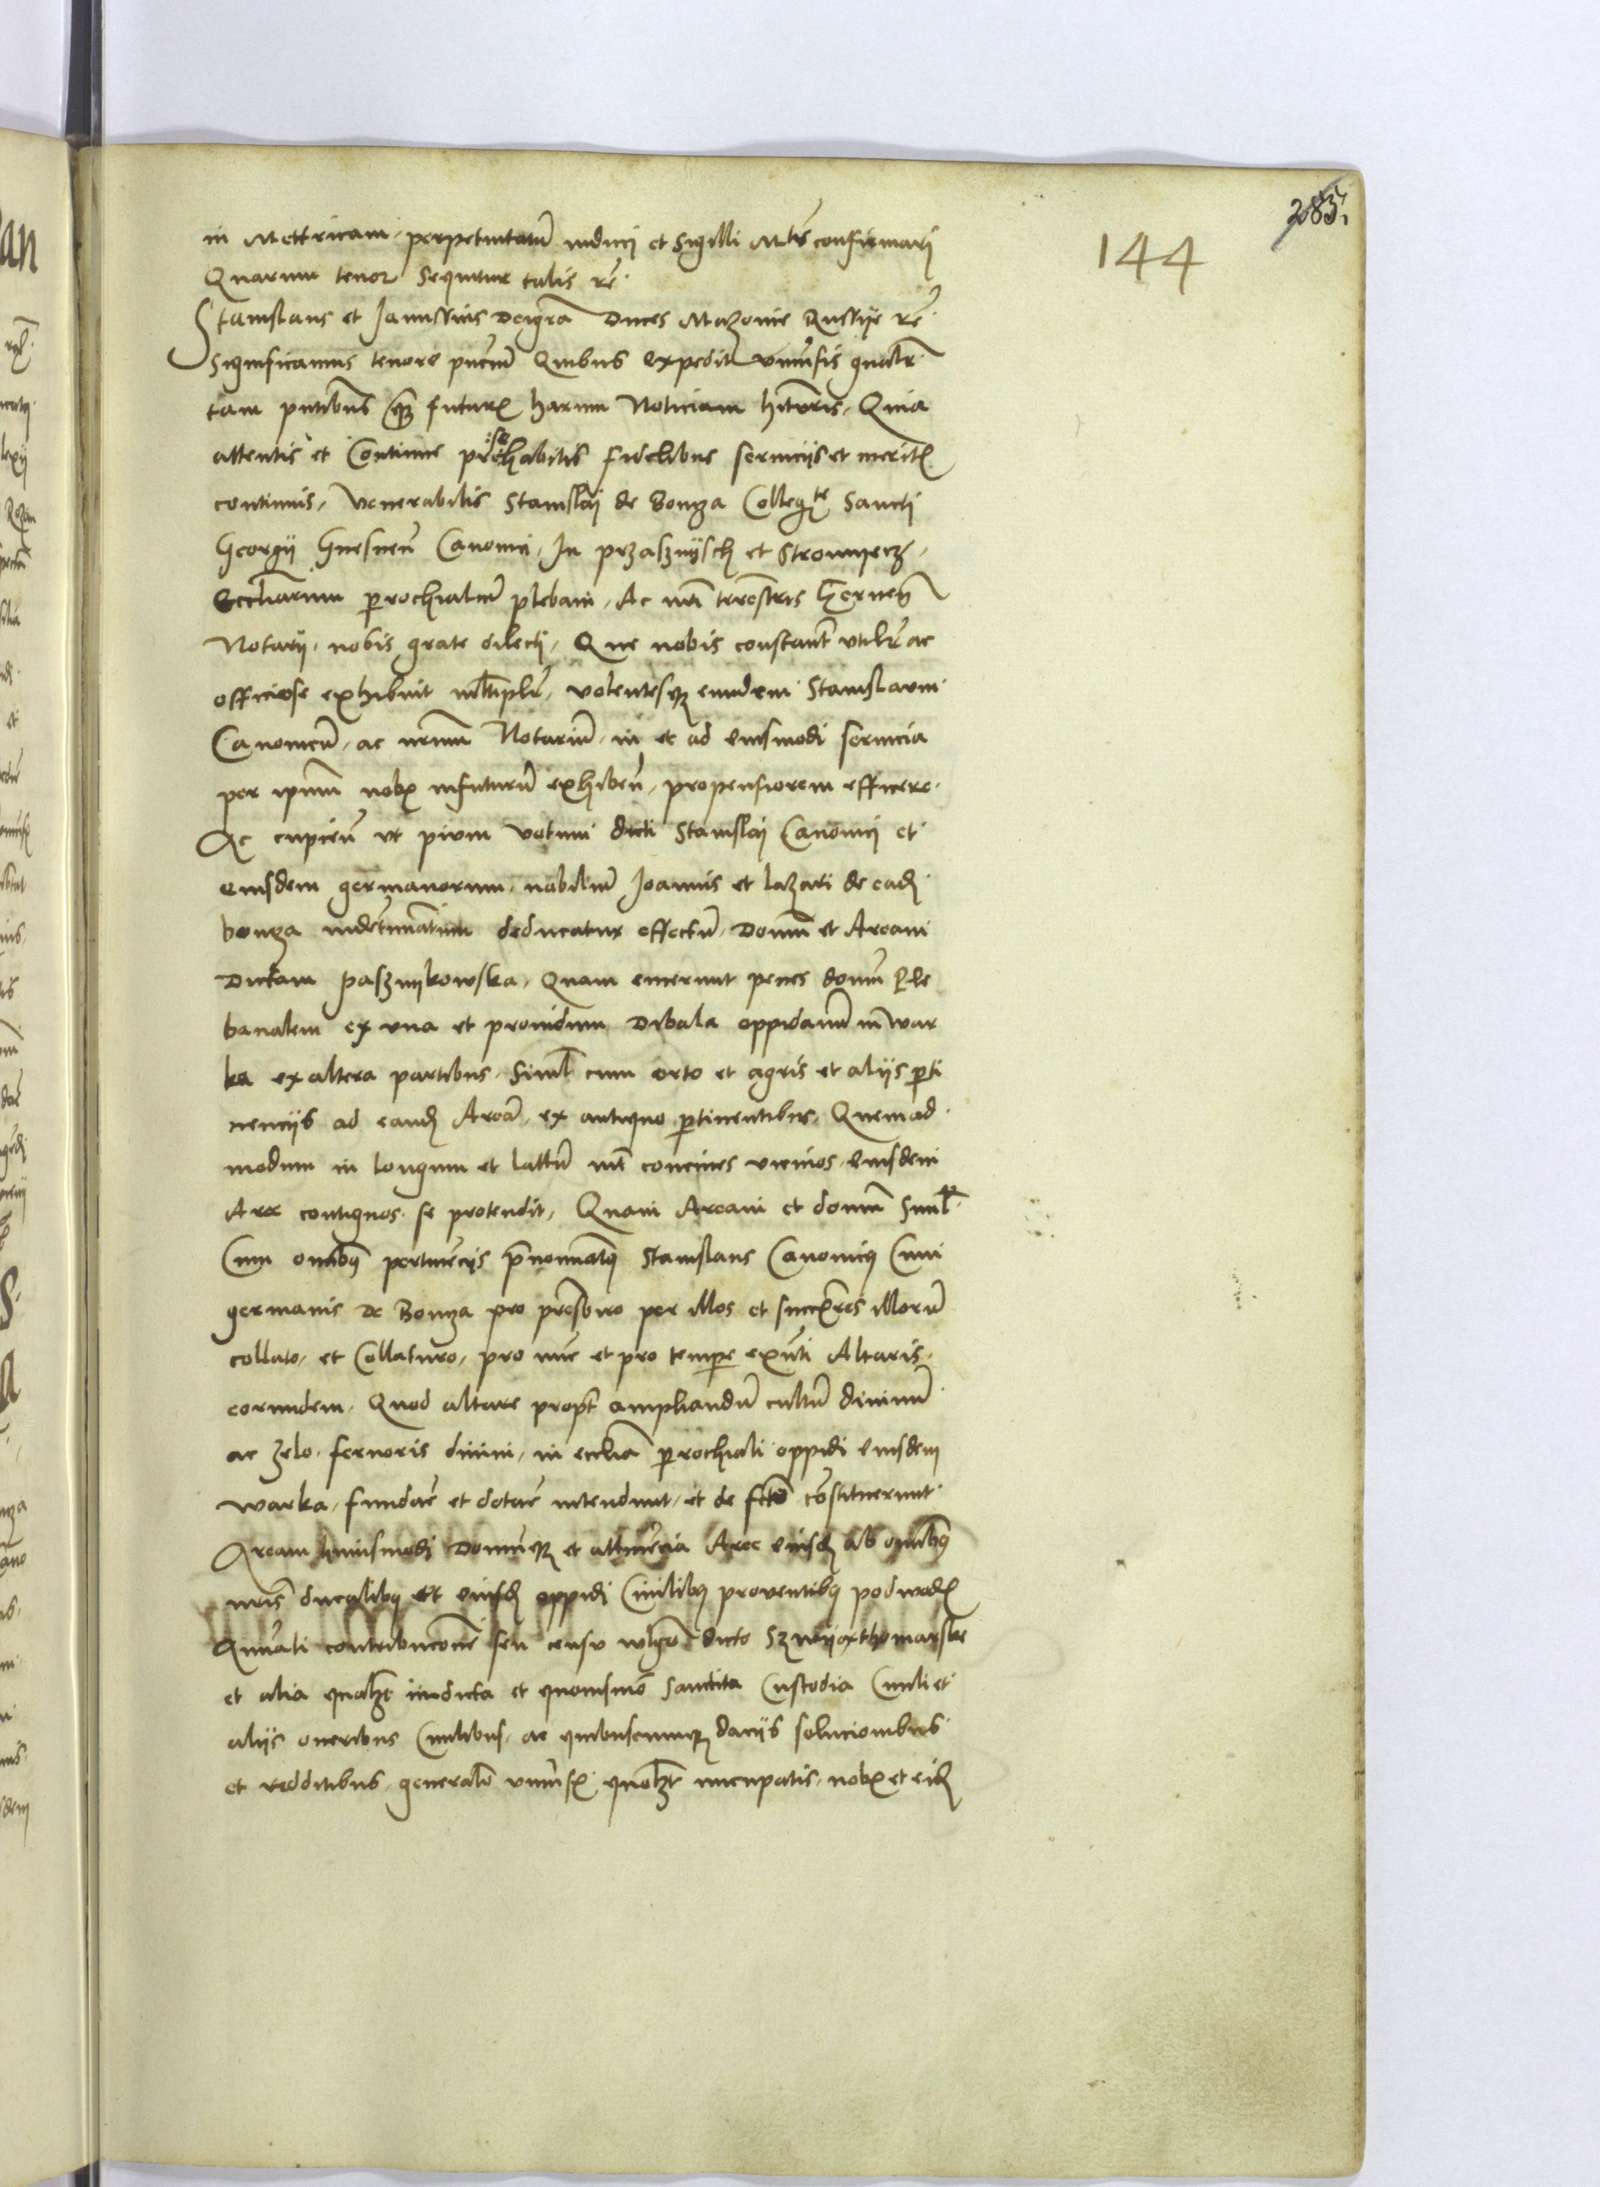 285.
144
in Mettricam perpetuitatum induci et Sigilli Mtis confirmari
Quarum tenor sequitur talis rē
Stanislaus et Janussius Dei gra Duces Mazovie Russije rē
Significamus tenore pntium Quibus expedit universis gnalr
tam pntibus qm futur harum Noticiam hituris Quia
attentis et Continue prehabitis fidelibus serviciis et merit
continuis Venerabilis Stanislai de Bonza Collegte Sancti
Georgij Gnesnen Canonici In przasznijsch et Stromyecz
Eccliarum parochialium plebani Ac nri trrestris Czernen
Notarij nobis grate dilecti Que nobis constant utilr ac
officiose exhibuit mltiplr volentesq eundem Stanislaum
Canonicum ac nrum Notarium in et ad eiusmodi servicia
per ipsum nobis infuturum exhiben propensiorem efficere
Ac cupien ut pium votum dicti Stanislai Canonici et
eiusdem germanorum nobilium Joannis et Lazari de ead
bonza deducatur effectum Domum et Aream
Dictam pasznijkowska Quam emerunt penes domum Ple
banalem ex una et providum Dibala oppidanum in War
ka ex altera partibus Siml cum orto et agris et alijs perti
nencijs ad eand Aream ex antiquo pertinentibus Quemad
modum in longum et lattum int vicinos eiusdem
Aree contiguos se protendit Quam Aream et domum Siml
Cum omnibus pertinencijs prenominatus Stanislaus Canonicus Cum
germanis De Bonza pro presbitro per illos et successores illorum
collato et Collaturo pro nunc et pro tempore existenti Altaris
eorundem Quod altare propt ampliandum cultum divinum
ac zelo fervoris divini in ecclia parochiali oppidi eiusdem
Warka fundare et dotare intendunt et de fcto constituerunt
Aream huiusmodi Domumq et attinencia Aree eiusd ab omnibus
nris ducalibus et eiusd oppidi Civilibus proventibus podwod
Annuali contribucione seu censu wlgo dicto Szwijathomarske
et alia qualzt indicta et quovismodo Sanctita Custodia Civili et
alijs oneribus Civilibus ac quibuscumq dacijs solucionibus
et redditibus generali univers quolzt nuncupatis nobis et eisd